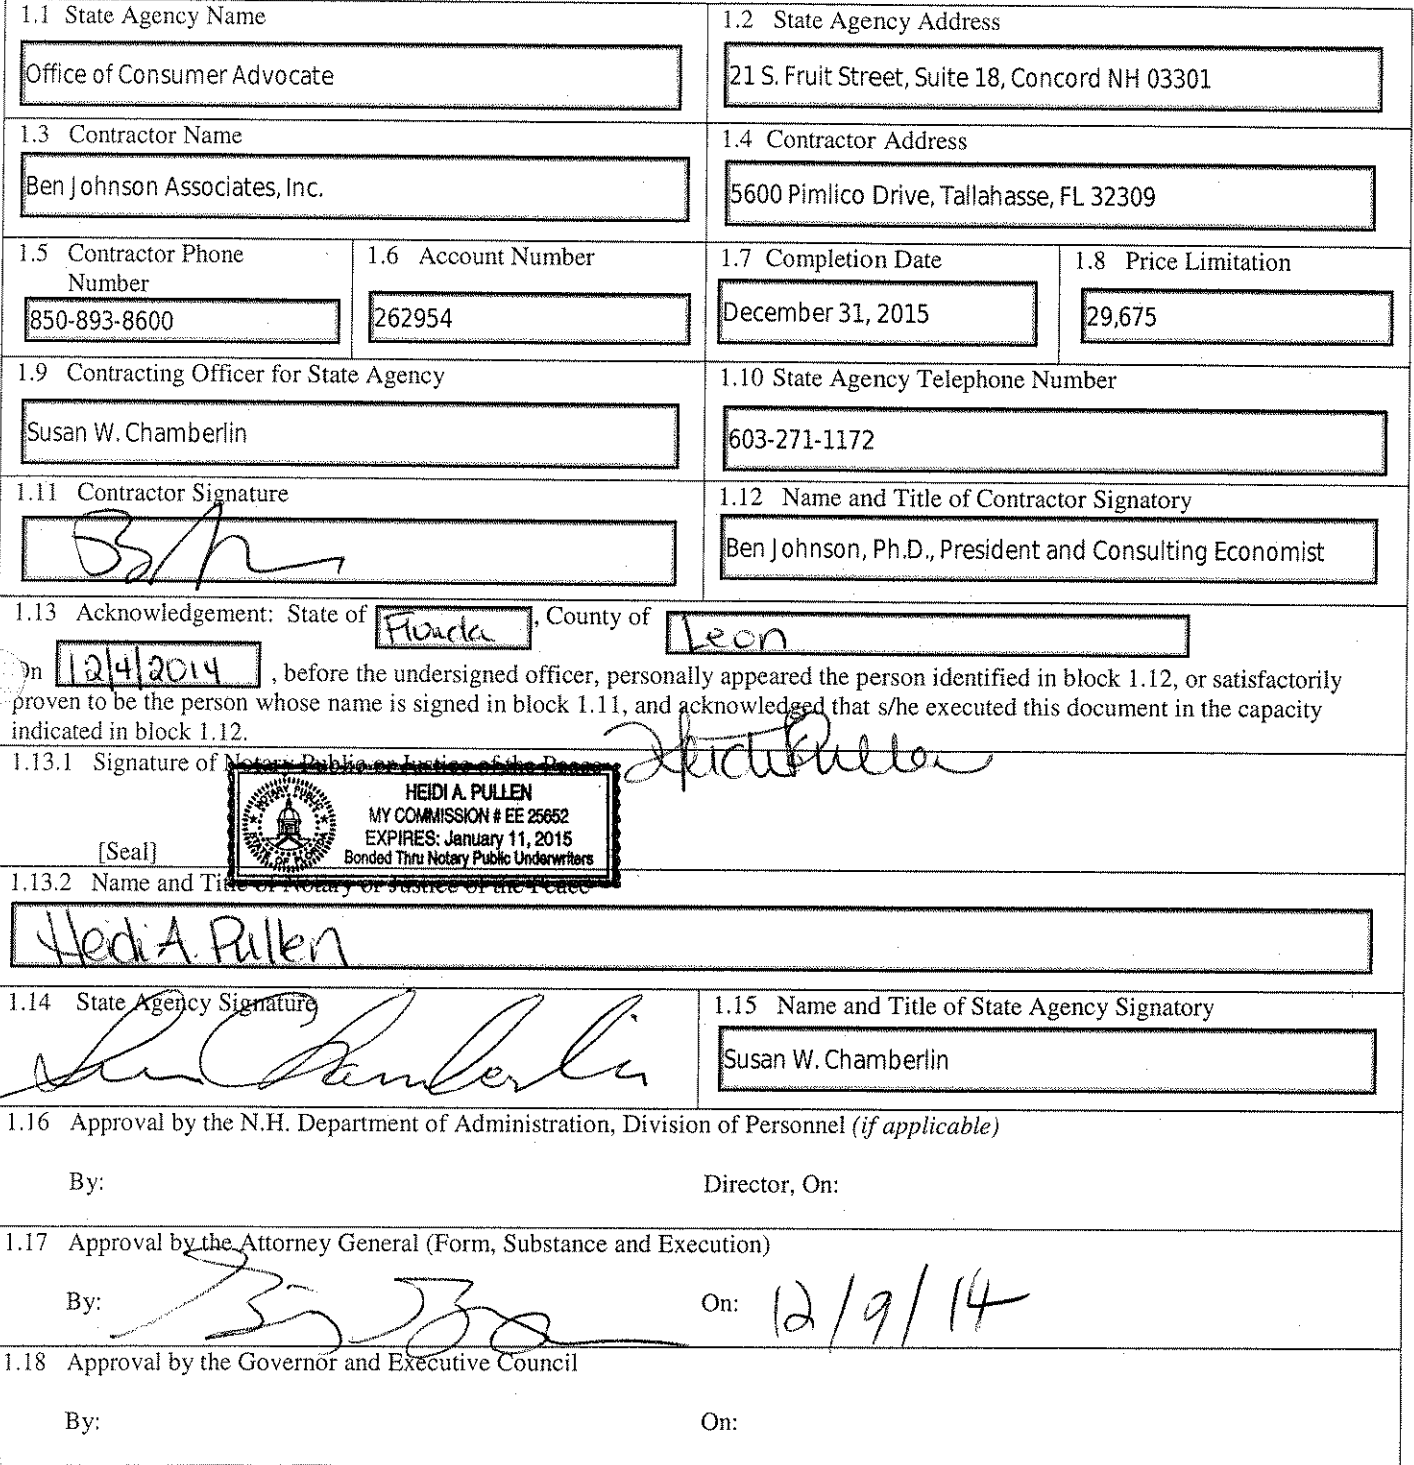 1.1 State Agency Name
1.2 State Agency Address
Office of Consumer Advocate
21 S. Fruit Street, Suite 18, Concord NH 03301
1.3 Contractor Name
1.4 Contractor Address
Ben Johnson Associates, Inc.
5600 Pimlico Drive, Tallahasse, FL 32309
1.5 Contractor Phone
Number
1.6 Account Number
1.7 Completion Date
1.8 Price Limitation
850-893-8600
262954
December 31, 2015
29,675
1.9 Contracting Officer for State Agency
1.10 State Agency Telephone Number
Susan W. Chamberlin
603-271-1172
1.11 Contractor Signature
1.12 Name and Title of Contractor Signatory
Ben Johnson, Ph.D., President and Consulting Economist
1.13 Acknowledgement: State of Florida, County of Leon
On 12/4/2014, before the undersigned officer, personally appeared the person identified in block 1.12, or satisfactorily
proven to be the person whose name is signed in block 1.11, and acknowledged that s/he executed this document in the capacity
indicated in block 1.12.
1.13.1 Signature of Notary Public or Justice of the Peace
Heidi Pullen
HEIDI A. PULLEN
MY COMMISSION # EE 25652
EXPIRES: January 11, 2015
Bonded Thru Notary Public Underwriters
NOTARY PUBLIC
STATE OF FLORIDA
[Seal]
1.13.2 Name and Title of Notary or Justice of the Peace
Heidi A. Pullen
1.14 State Agency Signature
Susan Chamberlin
1.15 Name and Title of State Agency Signatory
Susan W. Chamberlin
1.16 Approval by the N.H. Department of Administration, Division of Personnel (if applicable)
By:
Director, On:
1.17 Approval by the Attorney General (Form, Substance and Execution)
By:
On: 12/9/14
1.18 Approval by the Governor and Executive Council
By:
On: